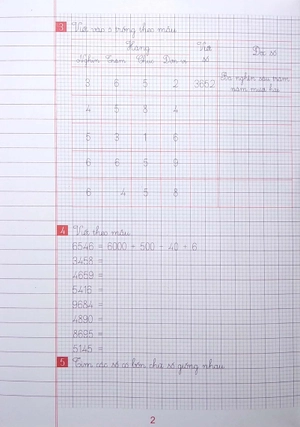 3 Viết vào ô trống theo mẫu
Hàng Viết số Đọc số
Nghìn Trăm Chục Đơn vị
3 6 5 2 3652 Ba nghìn sáu trăm năm mươi hai
4 5 3 4
5 3 1 6
6 6 5 9
6 4 5 8
4 Viết theo mẫu
6546 = 6000 + 500 + 40 + 6
3458 =
4659 =
5416 =
9684 =
4890 =
8695 =
5145 =
5 Tìm các số có bốn chữ số giống nhau
2